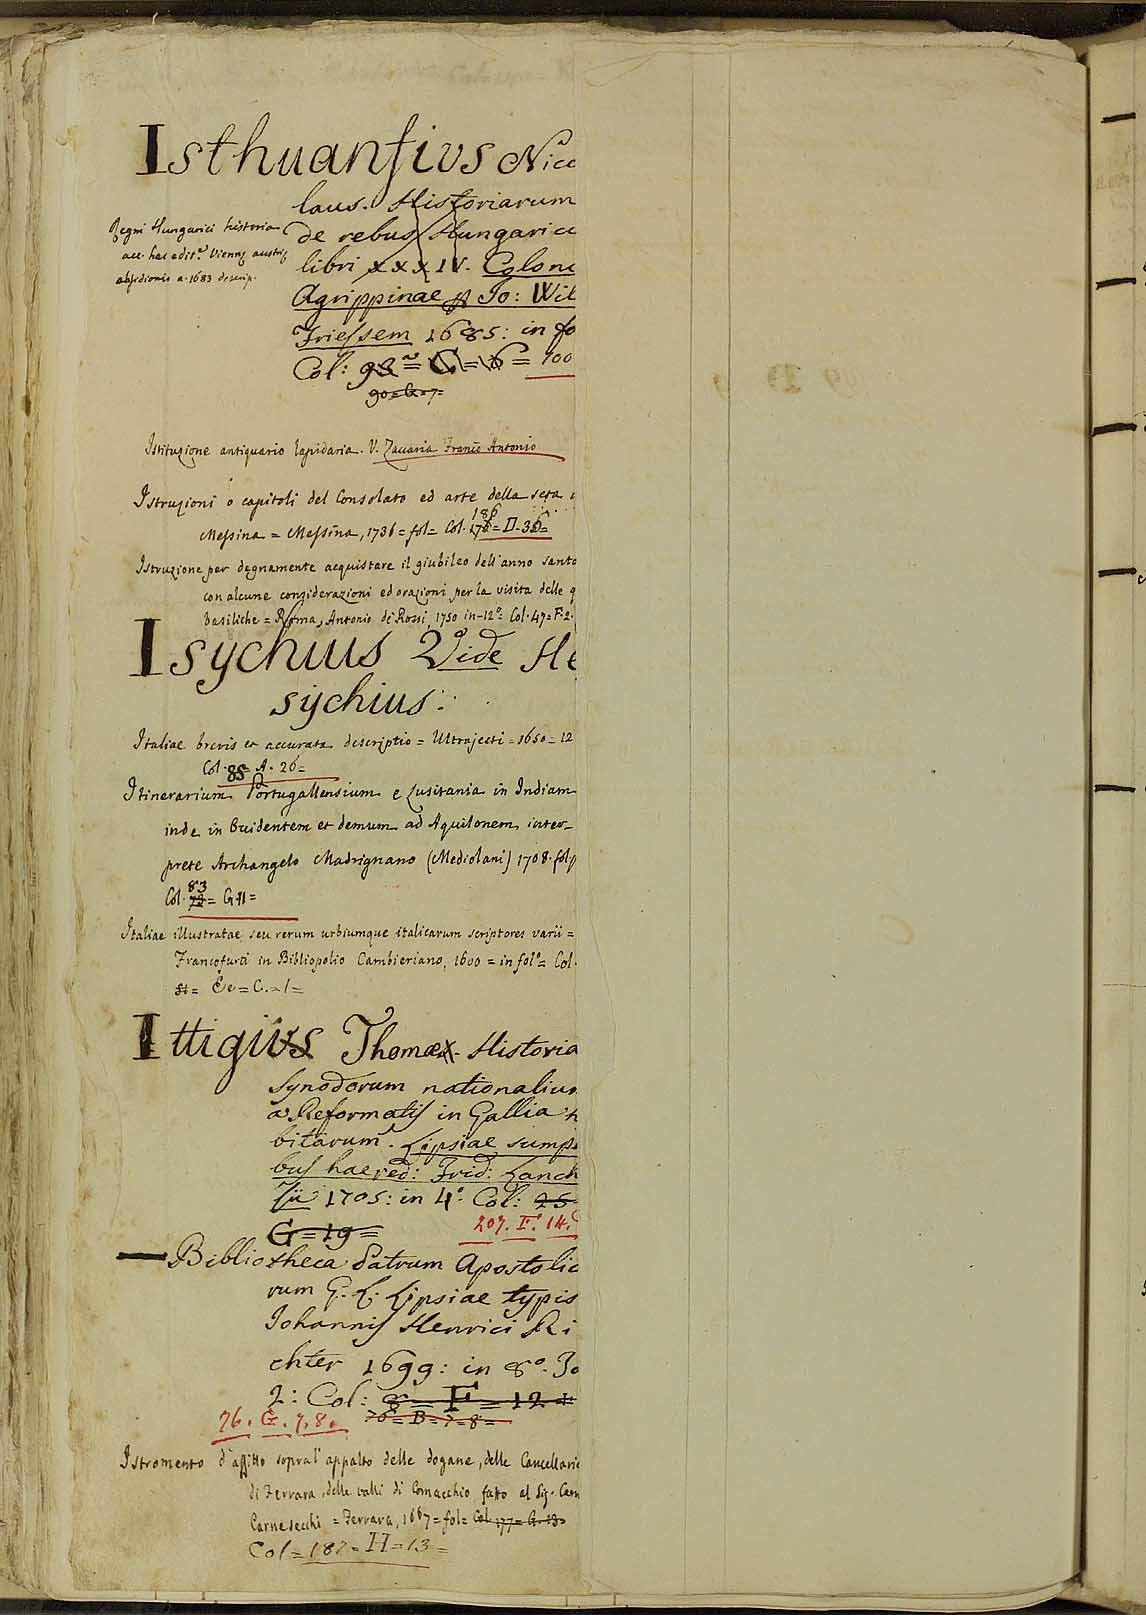 Isthuanfius Nico
laus. Historiarum
de rebus Hungarice
libri xxxIV. Colone
Agrippinae Jo: Wil
Friessem 1685: in fo
Col: 93 = G = 6 = 100
90 = G = 7 =
Regni Hungarici historia
acc. hac edit.e Viennę austrię
obsidionis a. 1683 descrip.
Istituzione antiquario lapidaria. V. Zaccaria Franco Antonio
Istruzioni o capitoli del Consolato ed arte della seta
186
Messina = Messina, 1736 = fol = Col. 176 = D. 36 =
Istruzione per degnamente acquistare il giubileo dell'anno santo
con alcune considerazioni ed orazioni per la visita delle q
basiliche = Roma, Antonio de Rossi, 1750 in-12° = Col. 47 = F. 2.
Isychius Vide He
sychius:
Italiae brevis et accurata descriptio = Ultrajecti = 1650 = 12
Col. 85 = A. 26 =
Itinerarium Portugallensium e Lusitania in Indiam
inde in Occidentem et demum ad Aquilonem, inter-
prete Archangelo Madrignano (Mediolani) 1708. fol
83
Col. 72 = G. 11 =
Italiae illustratae seu rerum urbiumque italicarum scriptores varii =
Francofurti in Bibliopolio Cambieriano, 1600 = in fol° = Col.
Ee = C. = 1 =
Ittigius Thomae. Historia
synodorum nationaliu
a Reformatis in Gallia h
bitarum. Lipsiae sump
bus haered: Frid: Lanck
1705: in 4° Col: 25
G = 19 =
207. F. 14.
— Bibliotheca Patrum Apostolic
rum G. L. Lipsiae typis
Johannis Henrici Ri
chter 1699: in 8°. To
2: Col: 8 = F = 12
76. G. 7, 8. 76 = B = 7 = 8 =
Istromento d'affitto sopra l'appalto delle dogane, delle Cancellarie
di Ferrara, delle valli di Comacchio fatto al Sig. Cam
Carnesecchi = Ferrara, 1667 = fol = Col. 177 = G. 13
Col = 187 = H = 13 =